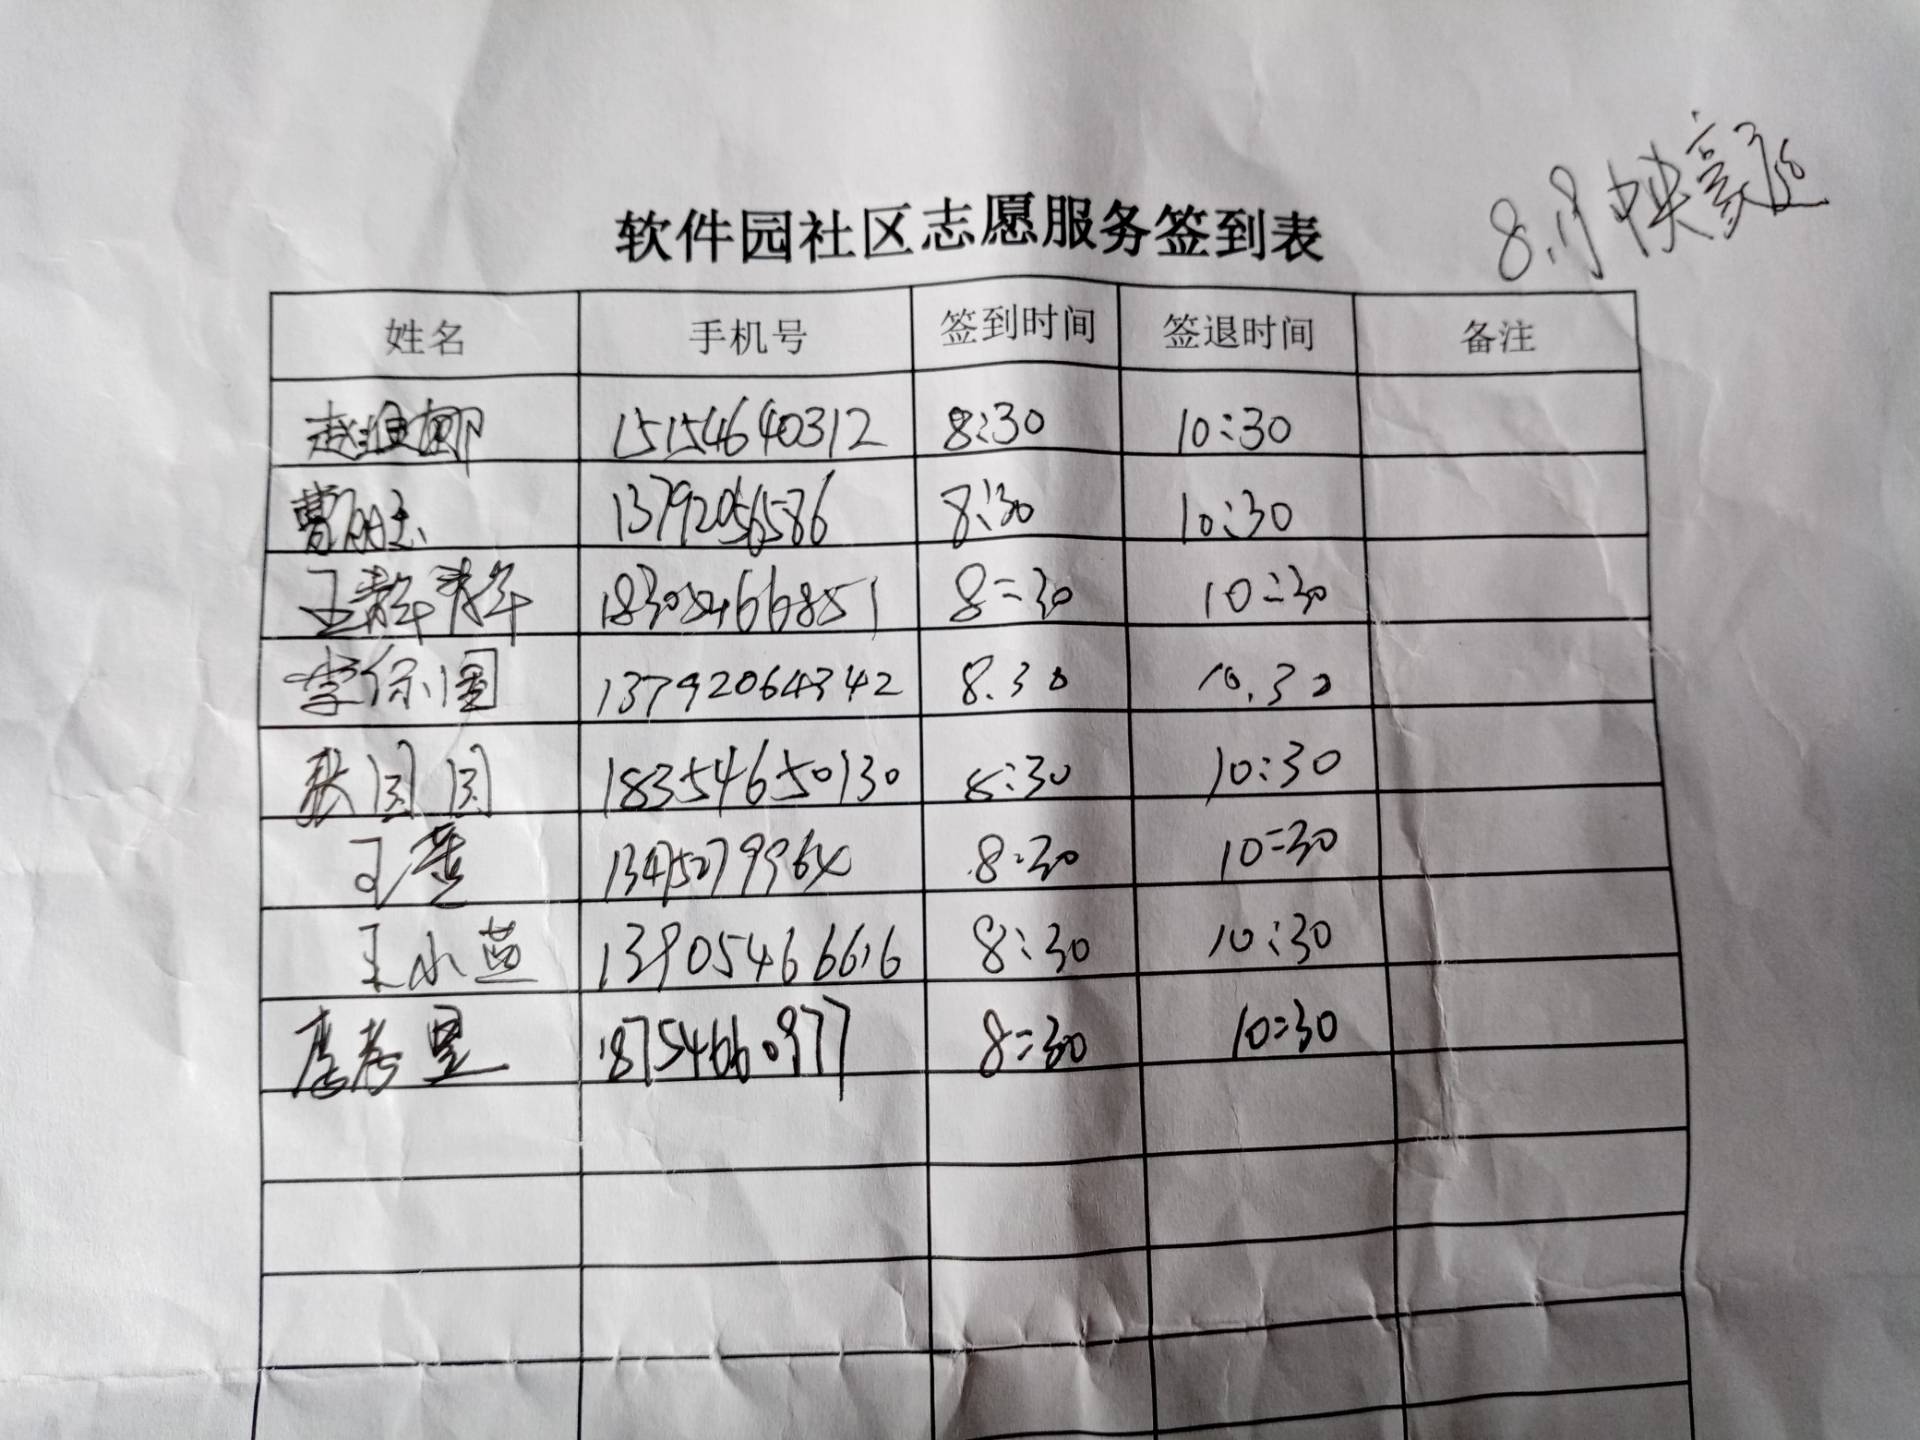 软件园社区志愿服务签到表
8.19 中央豪庭
姓名 手机号 签到时间 签退时间 备注
15154640312 8:30 10:30
曹丽玉 13792056586 8:30 10:30
王群群 18305466851 8:30 10:30
李保国 13792064342 8.30 10.30
张园园 18354650130 8:30 10:30
王燕 13475279964 8:30 10:30
王小燕 13905466616 8:30 10:30
唐孝星 18754660977 8:30 10:30